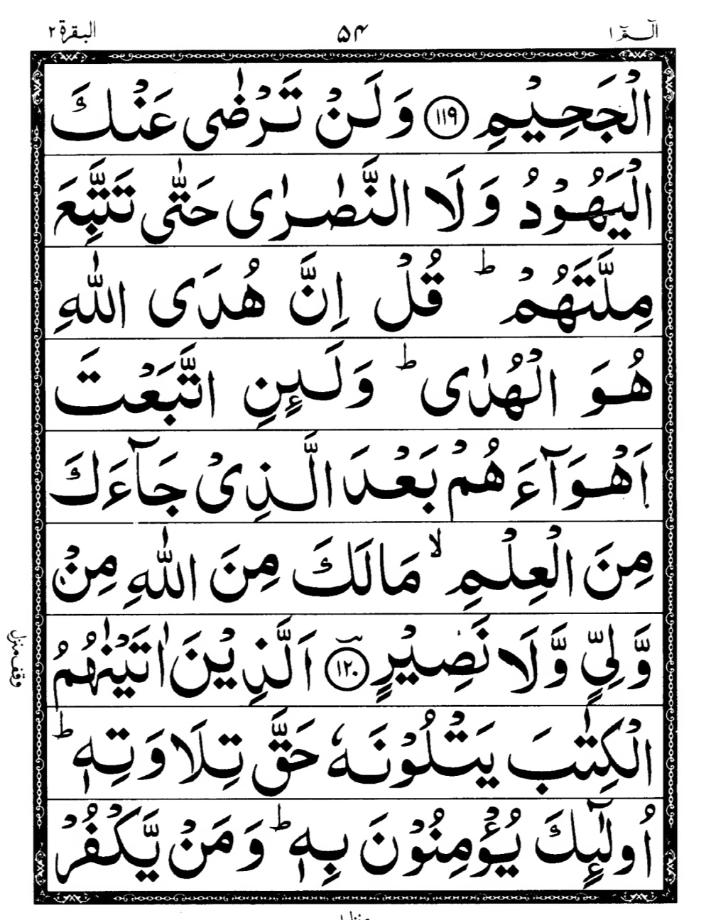 الٓمّٓ ١ ۵۴ البقرة ٢
الْجَحِيْمِ ﴿١١٩﴾ وَلَنْ تَرْضٰى عَنْكَ
الْيَهُوْدُ وَلَا النَّصٰرٰى حَتّٰى تَتَّبِعَ
مِلَّتَهُمْ ؕ قُلْ اِنَّ هُدَى اللّٰهِ
هُوَ الْهُدٰى ؕ وَلَئِنِ اتَّبَعْتَ
اَهْوَآءَهُمْ بَعْدَ الَّذِىْ جَآءَكَ
مِنَ الْعِلْمِ ۙ مَالَكَ مِنَ اللّٰهِ مِنْ
وَّلِىٍّ وَّلَا نَصِيْرٍ ﴿١٢٠﴾ اَلَّذِيْنَ اٰتَيْنٰهُمُ
وقف منزل
الْكِتٰبَ يَتْلُوْنَهٗ حَقَّ تِلَاوَتِهٖ ؕ
اُولٰٓئِكَ يُؤْمِنُوْنَ بِهٖ ؕ وَمَنْ يَّكْفُرْ